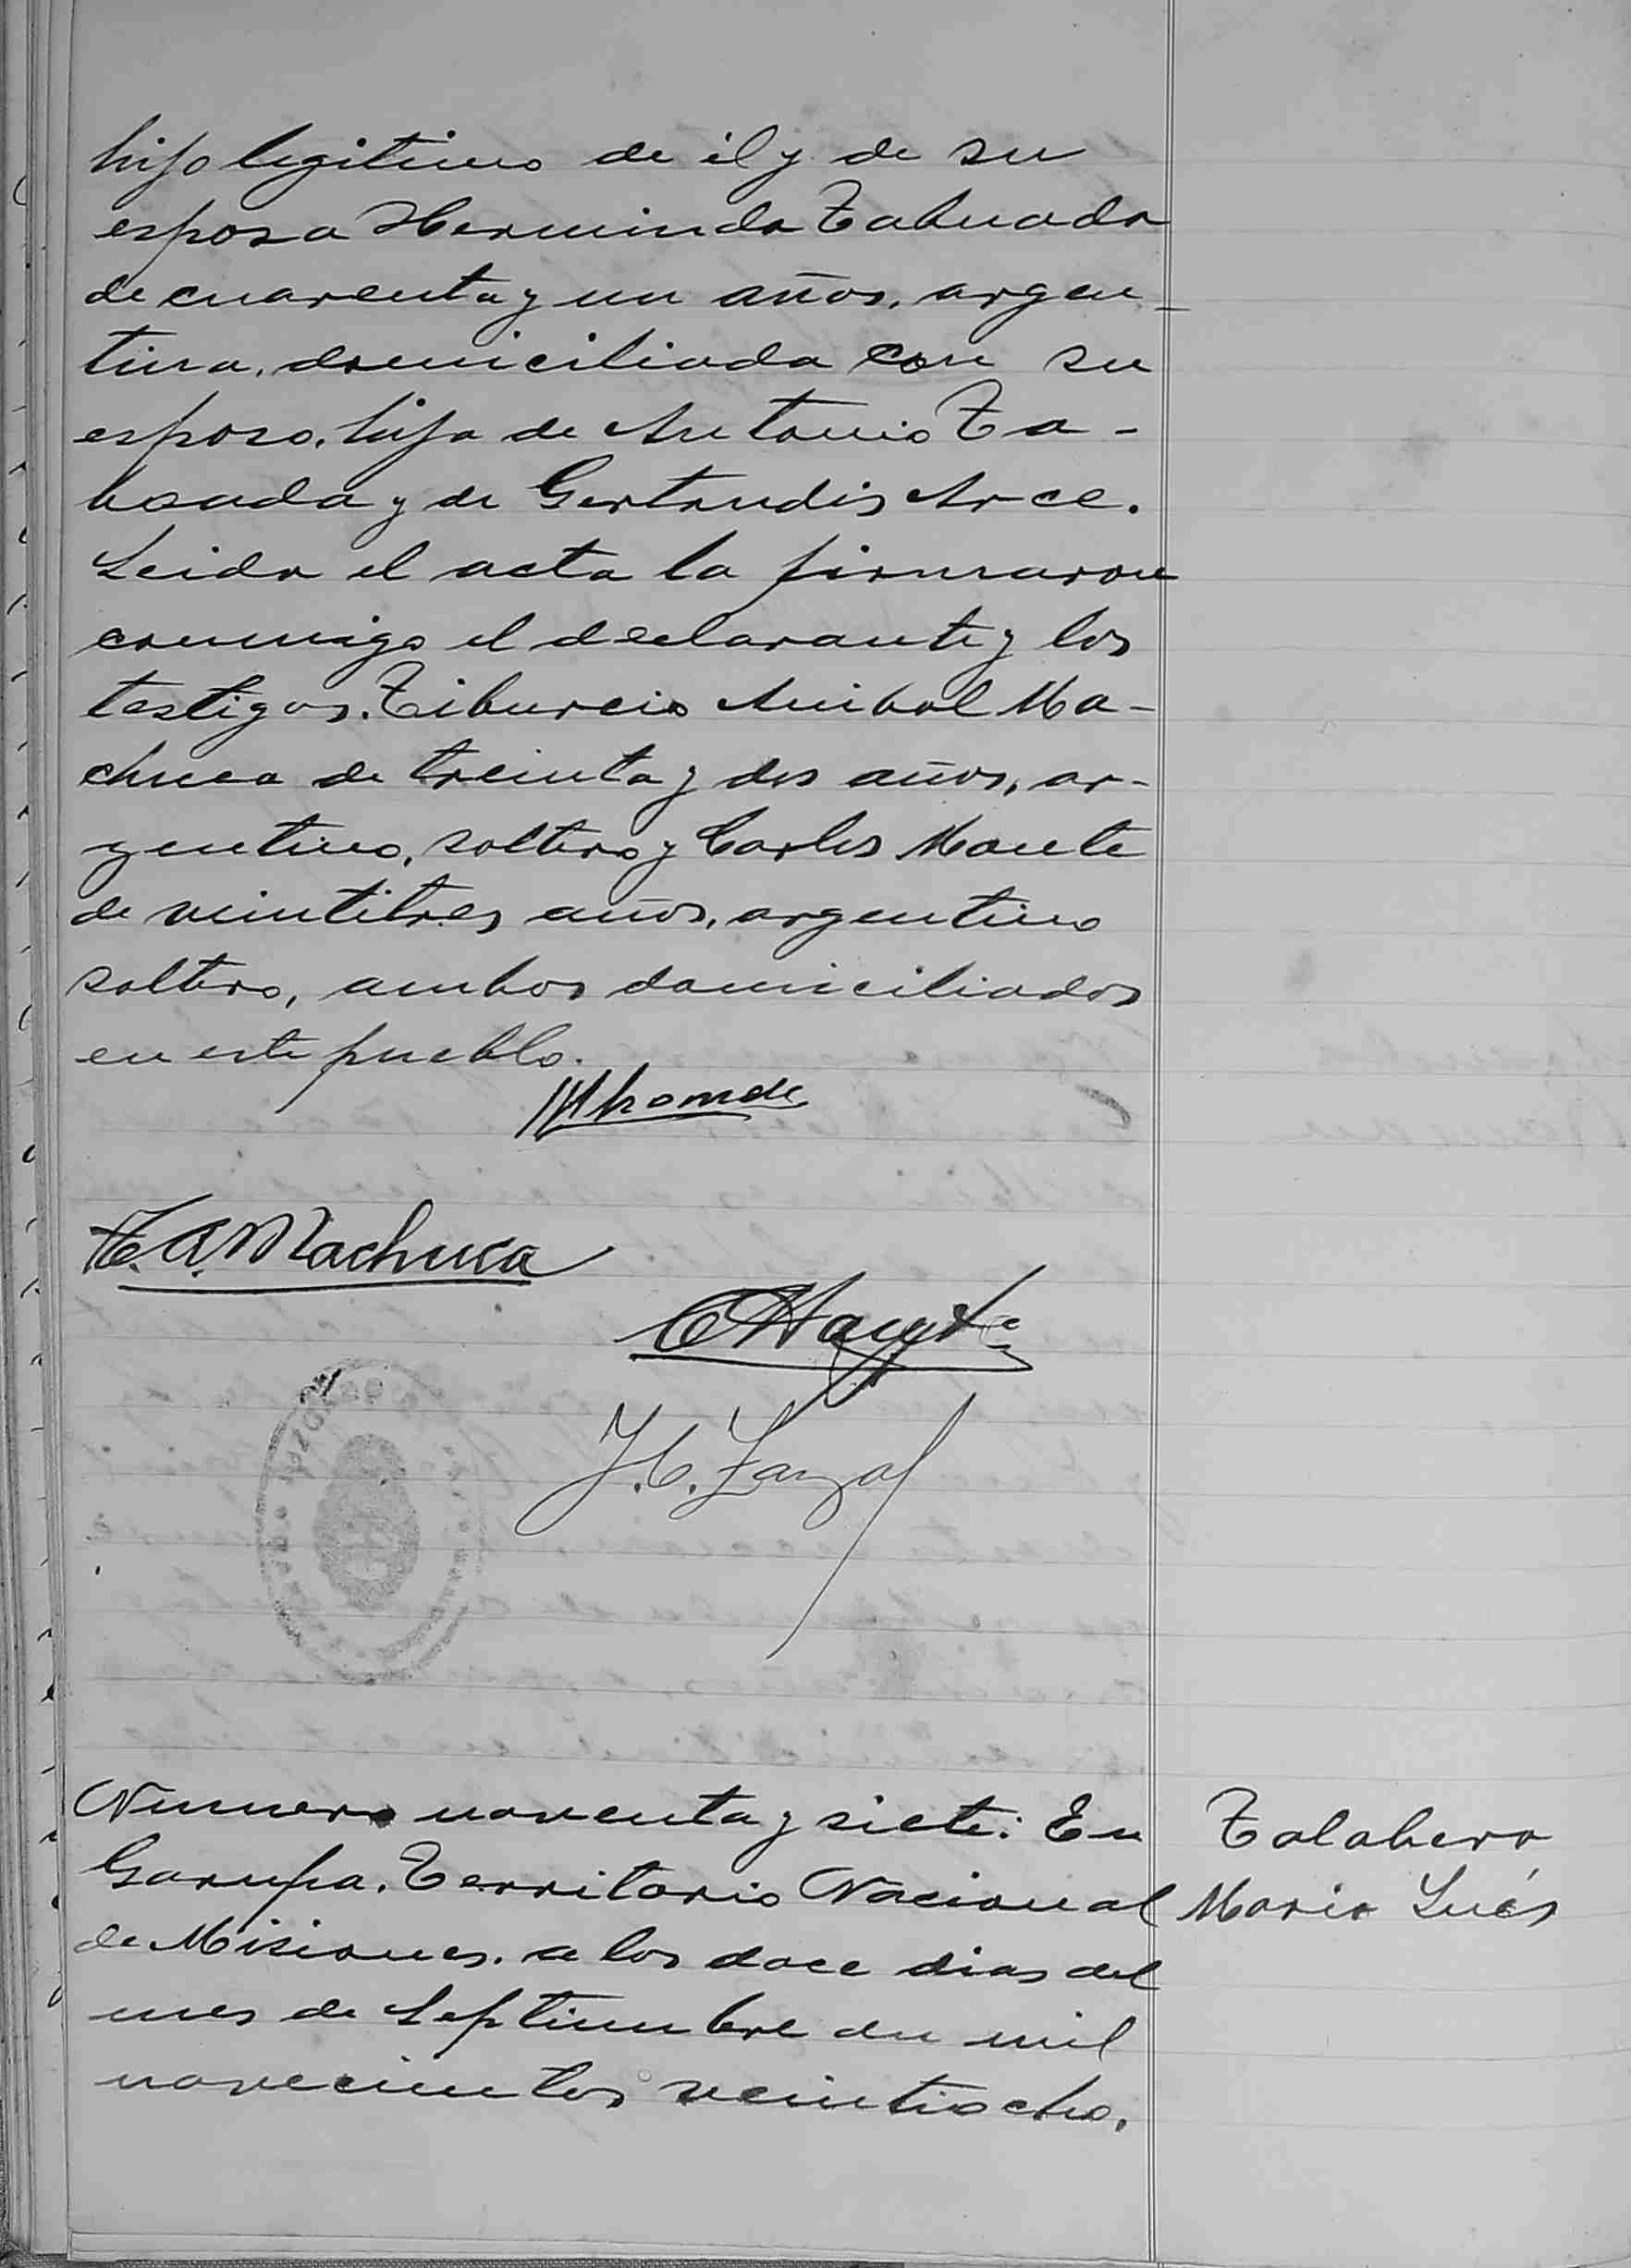 hijo legitimo de él y de su
esposa Herminda Tabuada
de cuarenta y un años, argen-
tina, domiciliada con su
esposo, hija de Antonio Ta-
boada y de Gertrudis Arce.
Leida el acta la firmaron
conmigo el declarante y los
testigos. Tiburcio Anibal Ma-
chuca de treinta y dos años, ar-
gentino, soltero y Carlos Mante
de veintitres años, argentino
soltero, ambos domiciliados
en este pueblo.
T. A. Machuca
J. C.
Numero noventa y siete: En
Garupa. Territorio Nacional
de Misiones. a los doce dias del
mes de Septiembre de mil
novecientos veintiocho.
Talabera
Maria Inés